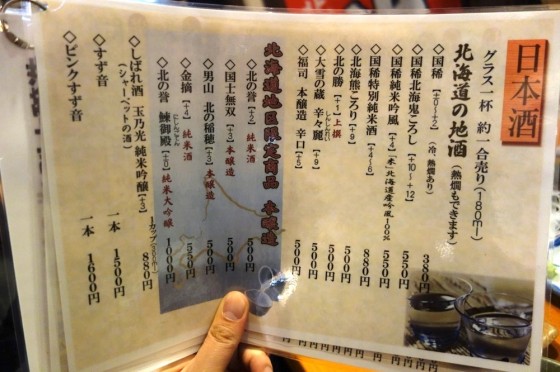 日本酒
グラス一杯 約一合売り(180ml)
北海道の地酒(熱燗もできます)
◇国稀 [±0~+2] (冷、熱燗あり) 380円
◇国稀北海鬼ころし [+10~+12] 550円
◇国稀純米吟風 [+4]「米」北海道産吟風100% 550円
◇国稀特別純米酒 [+4~6] 880円
◇北海熊ころり [+9] 500円
◇北の勝 [+1] 上撰 500円
◇大雪の蔵 辛々麗 [+9] 500円
◇福司 本醸造 辛口 [+5] 500円
北海道地区限定商品 本醸造
◇北の誉 [+2] 純米酒 500円
◇国士無双 [+3] 本醸造 500円
◇男山 北の稲穂 [+3] 本醸造 500円
◇金摘 [+4] 純米酒 550円
◇北の誉 鰊御殿 [±0] 純米大吟醸 1000円
◇しばれ酒 玉乃光 純米吟醸 [+3] 1カップ 880円
(シャーベットの酒)
◇すず音 一本 1500円
◇ピンクすず音 一本 1600円